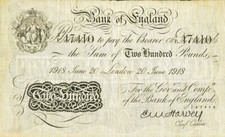 Bank of England
47440 to pay the Bearer 47440
the Sum of Two Hundred Pounds.
1918 June 20 London 20 June 1918
For the Gov.r and Comp.a
of the Bank of England.
Two Hundred
Chief Cashier